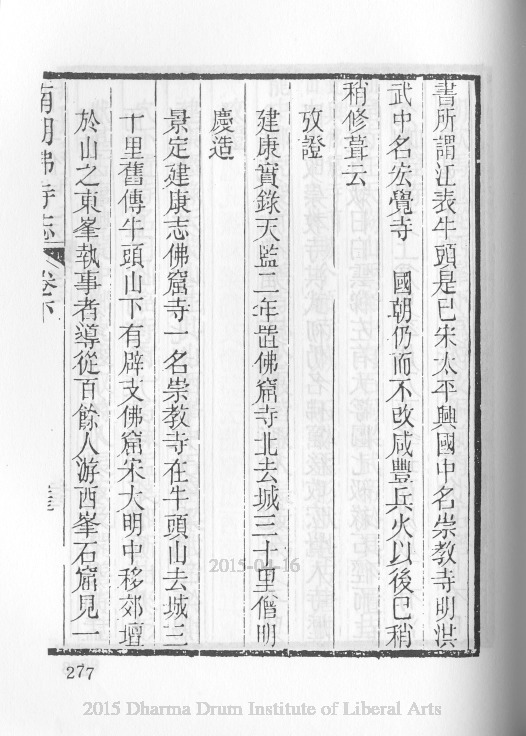 書所謂江表牛頭是已宋太平興國中名崇教寺明洪
武中名宏覺寺　國朝仍而不改咸豐兵火以後已稍
稍修葺云
攷證
建康實錄天監二年置佛窟寺北去城三十里僧明
慶造
景定建康志佛窟寺一名崇教寺在牛頭山去城三
十里舊傳牛頭山下有辟支佛窟宋大明中移郊壇
於山之東峯執事者導從百餘人游西峯石窟見一
南朝佛寺志 卷下
277
2015-04-16
2015 Dharma Drum Institute of Liberal Arts